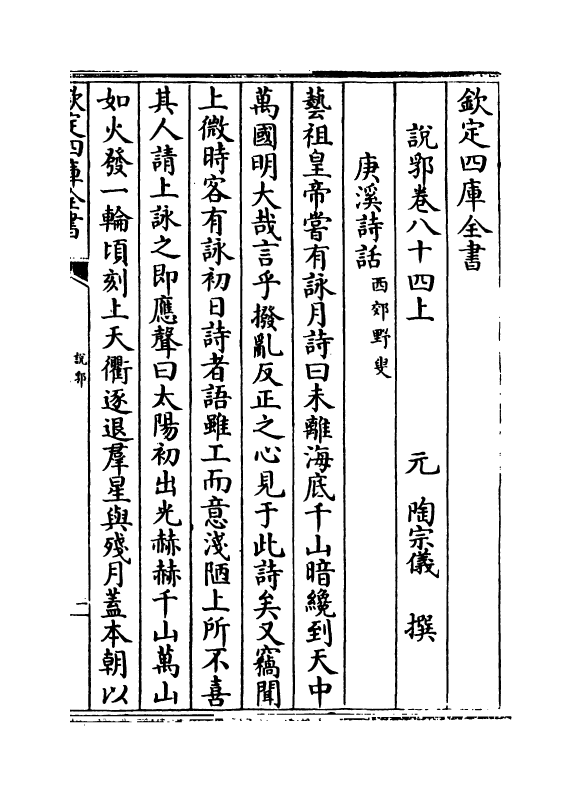 欽定四庫全書
說郛卷八十四上
元 陶宗儀 撰
庚溪詩話 西郊野叟
藝祖皇帝嘗有詠月詩曰未離海底千山暗纔到天中
萬國明大哉言乎撥亂反正之心見于此詩矣又竊聞
上微時客有詠初日詩者語雖工而意淺陋上所不喜
其人請上詠之即應聲曰太陽初出光赫赫千山萬山
如火發一輪頃刻上天衢逐退羣星與殘月蓋本朝以
欽定四庫全書
說郛